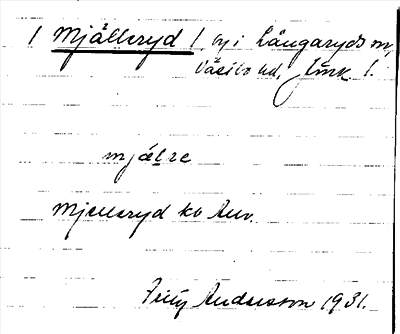 ( Mjälleryd ) by i Långaryds sn,
Västbo hd, Jönk l.
mjälre
Mjelleryd kb Auv
Andersson 1931.